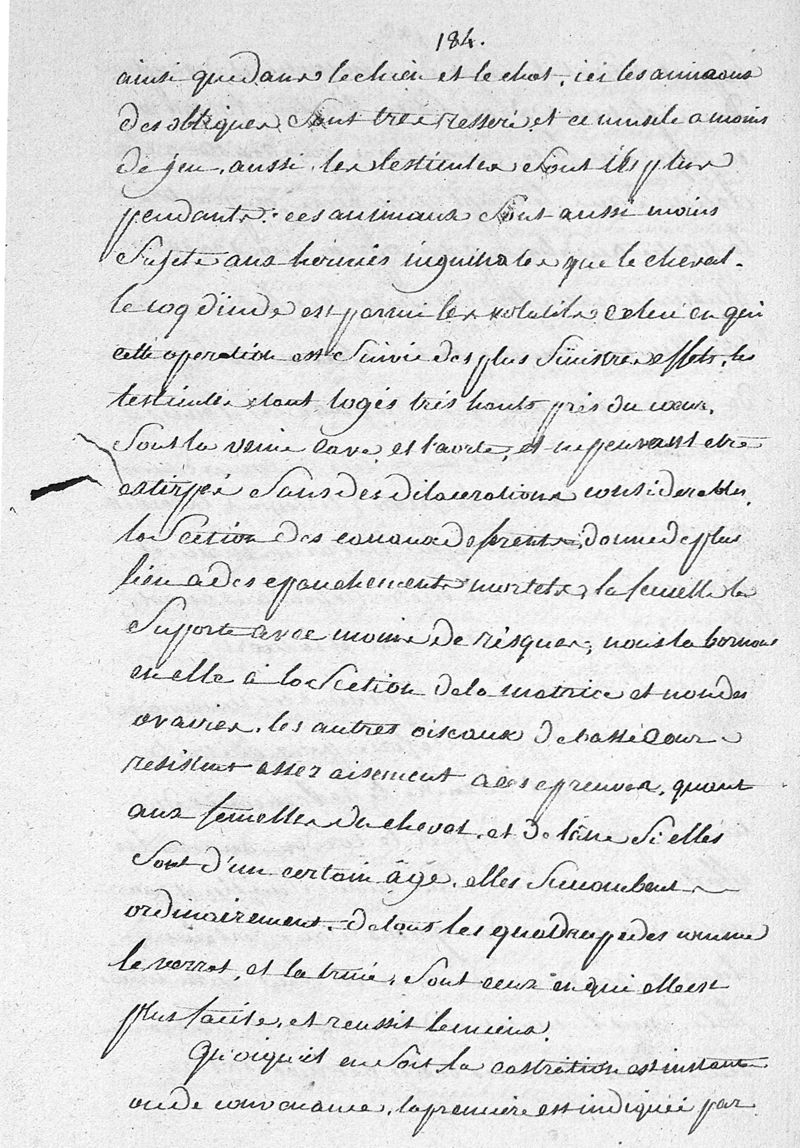 184.
ainsi que dans le chien et le chat, ici les anneaux
des obliques sont tres resseré et ce muscle a moins
de jeu, aussi les testicules sont ils plus
pendants: ces animaux sont aussi moins
sujets aux hernies inguinales que le cheval.
le coq dinde est parmi les volatiles celui en qui
cette operation est suivie des plus sinistres effets, les
testicules etant logés trés hauts prés du cœur,
sous la veine cave, et l'aorte, et ne peuvent etre
extirpés sans des dilacerations considerables,
la section des canaux deferents, donne de plus
lieu a des epanchements mortels, la femelle la
suporte avec moins de risques, nous la bornons
en elle à la section de la matrice et non des
ovaires, les autres oiseaux de basse cour
resistent assez aisement a ces epreuves, quant
aux femelles du cheval, et de l'âne si elles
sont d'un certain âge, elles succombent
ordinairement, de tous les quadrupedes comme
le verrat, et la truie, sont ceux en qui elle est
plus facile, et reussit le mieux.
Quoiqu'il en soit la castration est instante
ou de convenance, la premiere est indiquée par